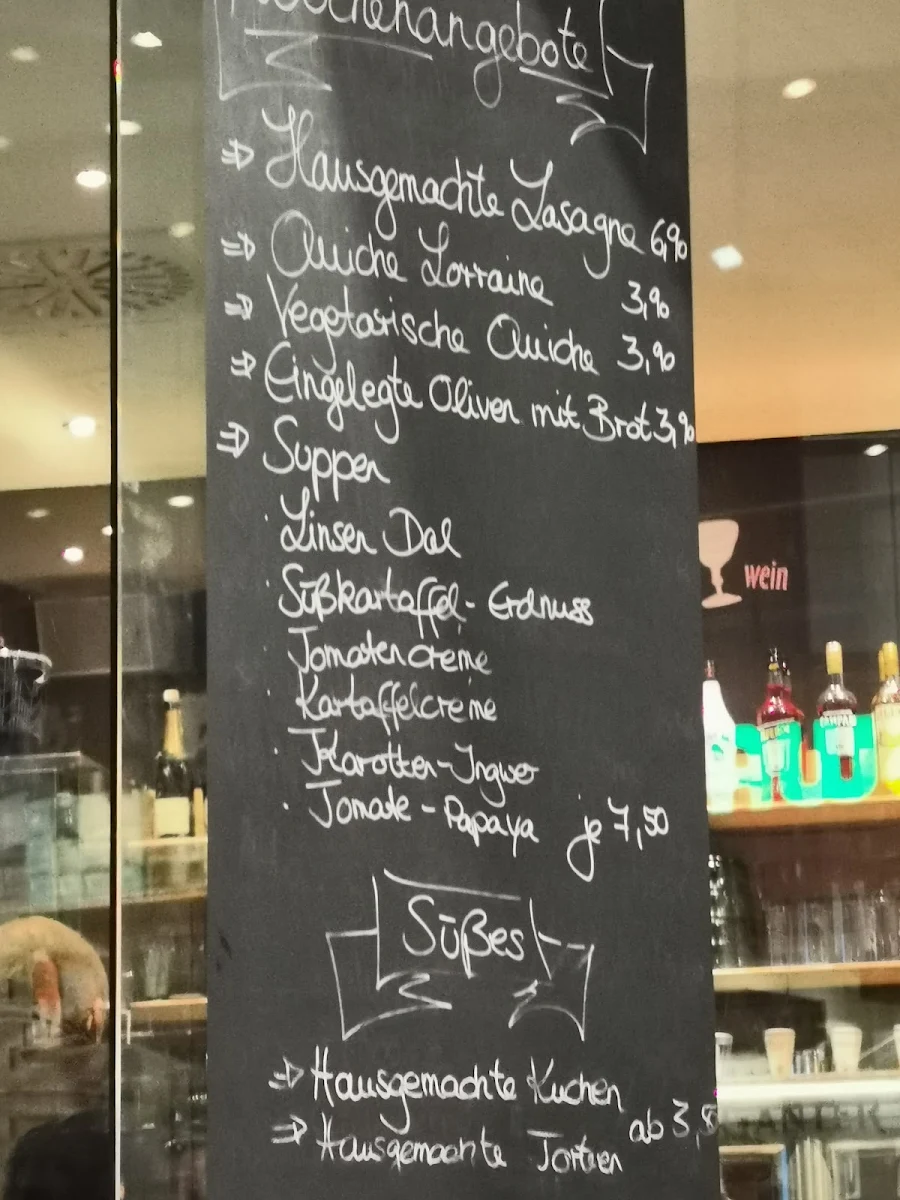 Wochenangebote
⇒ Hausgemachte Lasagne 6,90
⇒ Quiche Lorraine 3,90
⇒ Vegetarische Quiche 3,90
⇒ Eingelegte Oliven mit Brot 3,90
⇒ Suppen
· Linsen Dal
· Süßkartoffel - Erdnuss
· Tomatencreme
· Kartoffelcreme
· Karotten-Ingwer
· Tomate - Papaya je 7,50
Süßes
⇒ Hausgemachte Kuchen
⇒ Hausgemachte Torten ab 3,
wein
CAMPARI